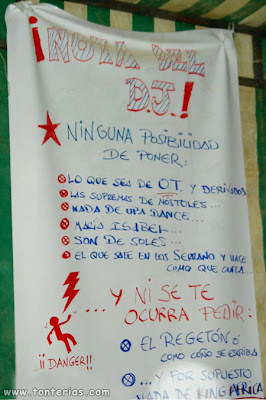 ¡NOTA DEL
D.J.!
NINGUNA POSIBILIDAD
DE PONER:
LO QUE SEA DE OT. Y DERIVADOS
LAS SUPREMAS DE MOSTOLES...
NADA DE UPA DANCE...
MARÍA ISABEL...
SON DE SOLES...
EL QUE SALE EN LOS SERRANO Y HACE
COMO QUE CANTA...
... Y NI SE TE
OCURRA PEDIR:
EL REGETÓN O
COMO COÑO SE ESCRIBA
¡¡DANGER!!
... Y POR SUPUESTO
NADA DE KING AFRICA
www.tonterias.com